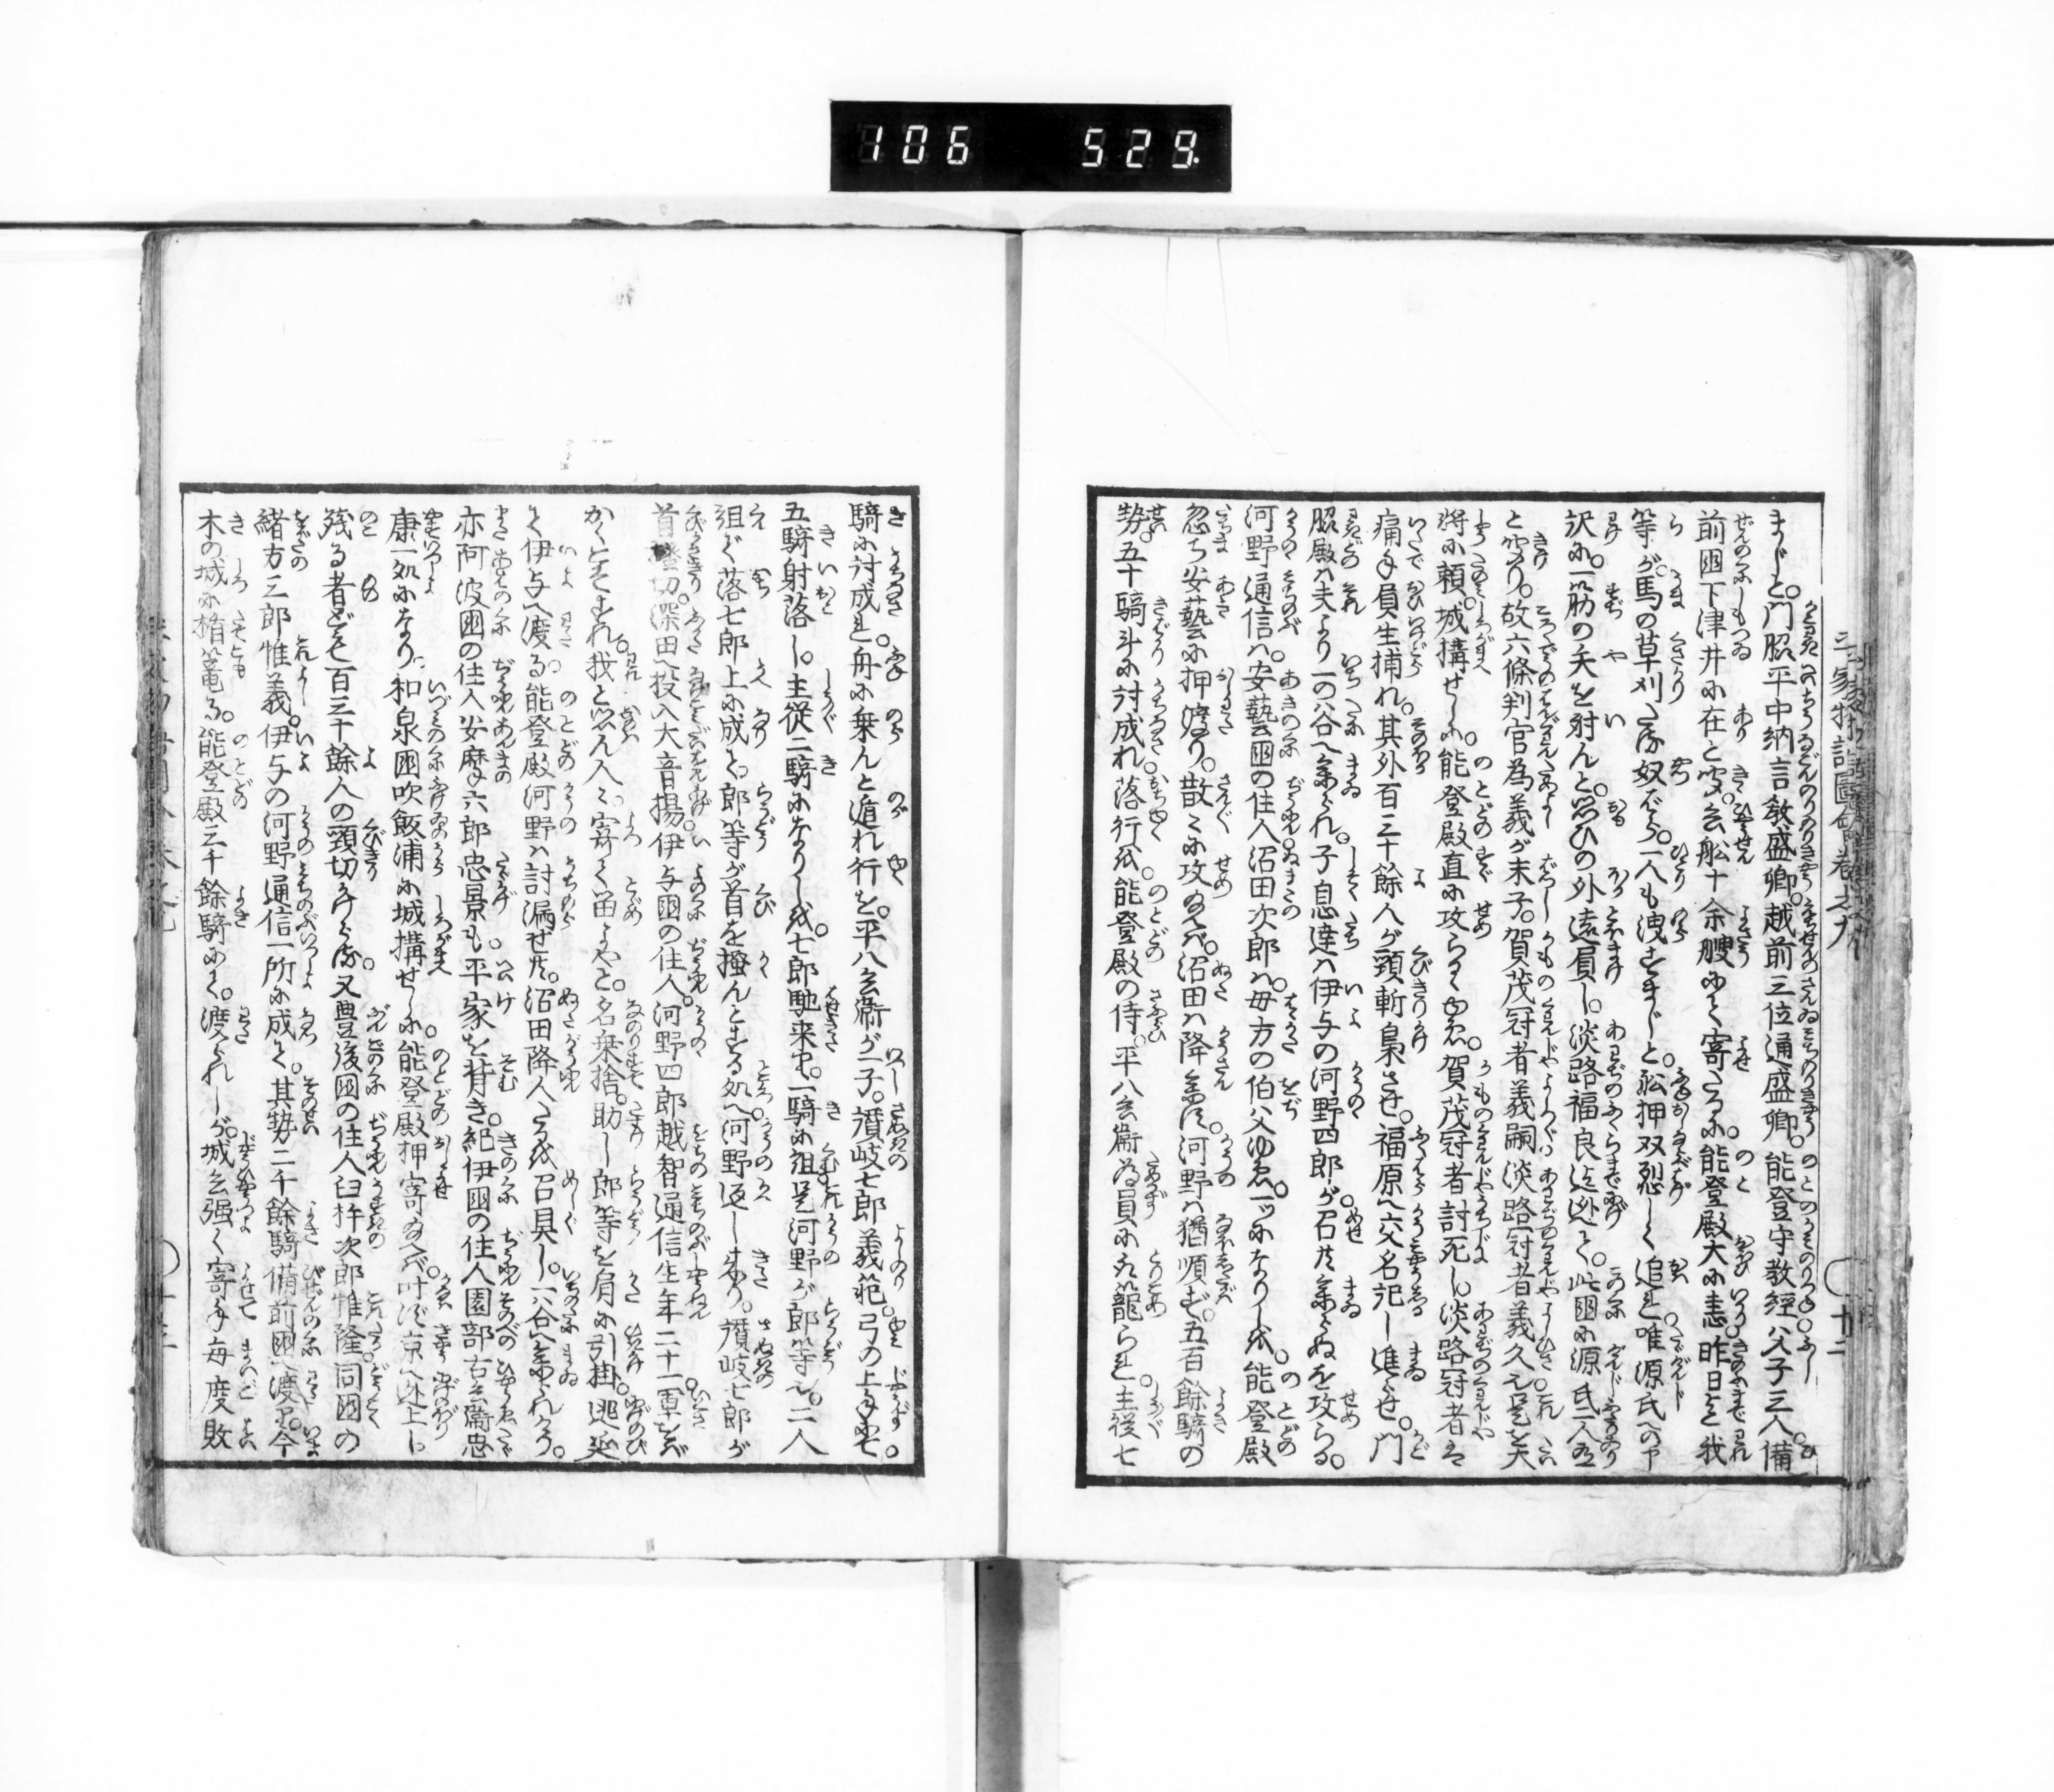 106 529
平家物語圖會 巻之六 〇十二
まじと。門脇平中納言教盛卿。越前三位通盛卿。能登守教経。父子三人。備
前国下津井に在と聞。兵船十余艘にて寄たるに。能登殿大に恚。昨日迄我
等が。馬の草刈たる奴ばら。一人も洩すまじと。舩押双烈しく追まはせば唯源氏への申
訳に。一筋の矢を射んと。思ひの外遠負し。淡路福良迄逃て。此国に源氏一人在
と聞り。故六條判官為義が末子。賀茂冠者義嗣淡路冠者義久也是を大
将に頼。城構せしに。能登殿直に攻らるゝゆゑ。賀茂冠者討死し。淡路冠者は
痛手負生捕れ。其外百三十餘人が頸斬梟させ。福原へ交名記し進らせ。門
脇殿は夫より一の谷へ参られ。子息達は伊与の河野四郎が召共参らぬを攻らる。
河野通信は。安藝国の住人沼田次郎は。母方の伯父ゆゑ。一ッになりしが。能登殿
忽ち安藝に押渡り。散々に攻給へば。沼田は降参し。河野は猶順ず。五百餘騎の
勢。五十騎斗に討成れ。落行が。能登殿の侍。平八兵衛為員に取籠られ。主従七
騎に討成され。舟に乗んと遁れ行を。平八兵衛が子。讃岐七郎義範。弓の上手にて
五騎射落し。主従二騎になりしが。七郎馳来り。一騎に組是河野が郎等也。二人
組で落七郎上に成て。郎等が首を掻んとする処へ河野返し来り。讃岐七郎が
首掻切。深田へ投入大音揚。伊与国の住人。河野四郎越智通信生年二十一軍をば
かくこそすれ。我と思ん人々。寄て留よやと。名乗捨。助し郎等を肩に引掛。逃延
て伊与へ渡る。能登殿河野は討漏せ共。沼田降人たるが召具し。一谷へ参られける。
亦阿波国の住人安摩六郎忠景も平家を背き。紀伊国の住人園部右兵衛忠
康一処になり。和泉国吹飯浦に城構せしに。能登殿押寄給へば叶ず京へ逃上し。
残る者ども百三十餘人の頸切かけらる。又豊後国の住人臼杵次郎惟隆同国の
緒方三郎惟義。伊与の河野通信一所に成て。其勢二千餘騎備前国へ渡り。今
木の城に楯篭る。能登殿三千餘騎にて。渡られしが。城兵强く寄手毎度敗